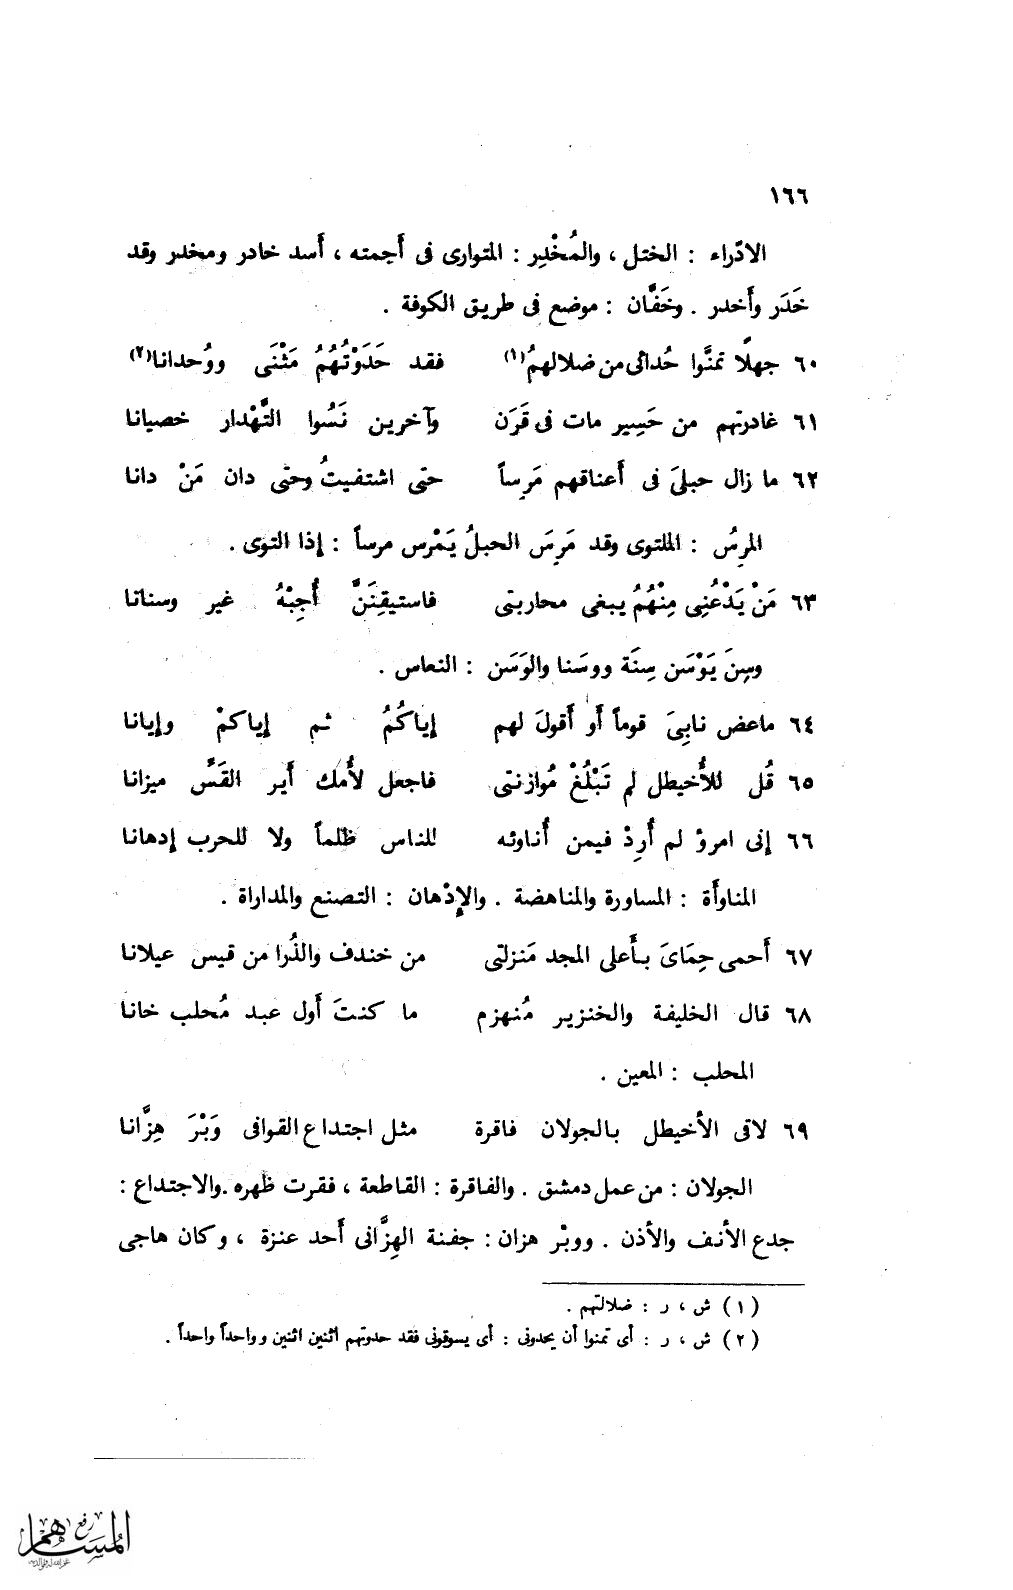 ١٦٦
الادّراء : الختل ، والمُخْدِر : المتوارى فى أَجمته ، أَسد خادر ومخدر وقد
خَدَر وأَخدر . وخَفَّان : موضع فى طريق الكوفة .
٦٠ جهلًا تمنَّوا حُدائى من ضلالهمُ(١) فقد حَدَوْتُهُمُ مَثْنَى ووُحدانا(٢)
٦١ غادرتهم من حَسِير مات فى قَرَن وآخرين نَسُوا التَّهْدار خصيانا
٦٢ ما زال حبلىَ فى أَعناقهم مَرِساً حتى اشتفيتُ وحتى دان مَنْ دانا
المرِسُ : الملتوى وقد مَرِسَ الحبلُ يَمْرس مرساً : إذا التوى .
٦٣ مَنْ يَدْعُنِى مِنْهُمُ يبغى محاربتى فاستيقِنَنَّ أُجِبْهُ غير وسنانا
وسِنَ يَوْسَن سِنَة ووسَنا والوَسَن : النعاس .
٦٤ ماعض نابِىَ قوماً أَو أَقولَ لهم إياكُمُ ثم إياكمْ وإيانا
٦٥ قُل للأُخيطل لم تَبْلُغْ مُوازنتى فاجعل لأُمك أَير القَسِّ ميزانا
٦٦ إنى امرؤ لم أُرِدْ فيمن أُناوئه للناس ظلماً ولا للحرب إدهانا
المناوأَة : المساورة والمناهضة . والإدْهان : التصنع والمداراة .
٦٧ أَحمى حِمَاىَ بأَعلى المجد مَنزلتى من خندف والذُرا من قيس عيلانا
٦٨ قال الخليفة والخنزير مُنهزم ما كنتَ أَول عبد مُحلب خانا
المحلب : المعين .
٦٩ لاقى الأخيطل بالجولان فاقرة مثل اجتداع القوافى وَبْرَ هِزَّانا
الجولان : من عمل دمشق . والفاقرة : القاطعة ، فقرت ظهره . والاجتداع :
جدع الأنف والأذن . ووبْر هزان : جفنة الهِزَّانى أَحد عنزة ، وكان هاجى
(١) ش ، ر : ضلالتهم .
(٢) ش ، ر : أى تمنوا أن يحدونى : أى يسوقونى فقد حدوتهم اثنين اثنين وواحداً واحداً .
رفع
المساهم